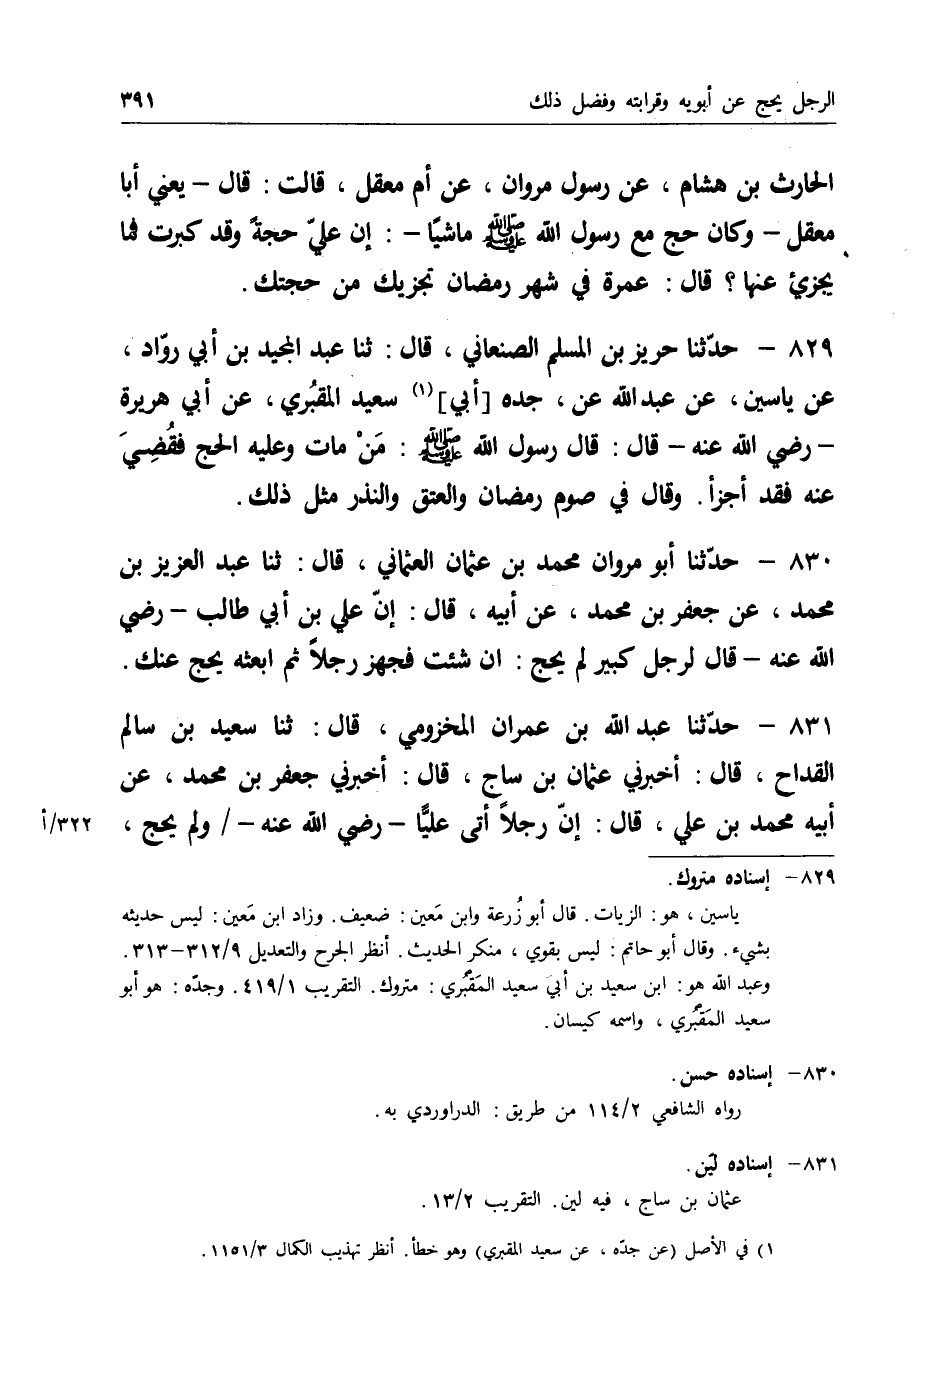 الرجل يحج عن أبويه وقرابته وفضل ذلك ٣٩١
الحارث بن هشام ، عن رسول مروان ، عن أم معقل ، قالت : قال – يعني أبا
معقل – وكان حج مع رسول الله ﷺ ماشيًا – : إن عليّ حجةً وقد كبرت فما
يجزئ عنها ؟ قال : عمرة في شهر رمضان تجزيك من حجتك .
٨٢٩ – حدّثنا حريز بن المسلم الصنعاني ، قال : ثنا عبد المجيد بن أبي روّاد ،
عن ياسين ، عن عبدالله عن ، جده [أبي](١) سعيد المقبُري ، عن أبي هريرة
– رضي الله عنه – قال : قال رسول الله ﷺ : مَنْ مات وعليه الحج فقُضِيَ
عنه فقد أجزأ . وقال في صوم رمضان والعتق والنذر مثل ذلك .
٨٣٠ – حدّثنا أبو مروان محمد بن عثمان العثماني ، قال : ثنا عبد العزيز بن
محمد ، عن جعفر بن محمد ، عن أبيه ، قال : إنّ علي بن أبي طالب – رضي
الله عنه – قال لرجل كبير لم يحج : ان شئت فجهز رجلاً ثم ابعثه يحج عنك .
٨٣١ – حدّثنا عبد الله بن عمران المخزومي ، قال : ثنا سعيد بن سالم
القداح ، قال : أخبرني عثمان بن ساج ، قال : أخبرني جعفر بن محمد ، عن
أبيه محمد بن علي ، قال : إنّ رجلاً أتى عليًّا – رضي الله عنه – / ولم يحج ، ٣٢٢/أ
٨٢٩– إسناده متروك .
ياسين ، هو : الزيات . قال أبو زُرعة وابن مَعين : ضعيف . وزاد ابن مَعين : ليس حديثه
بشيء . وقال أبو حاتم : ليس بقوي ، منكر الحديث . أنظر الجرح والتعديل ٣١٢/٩–٣١٣ .
وعبد الله هو : ابن سعيد بن أبي سعيد المَقبُري : متروك . التقريب ٤١٩/١ . وجدّه : هو أبو
سعيد المَقبُري ، واسمه كيسان .
٨٣٠– إسناده حسن .
رواه الشافعي ١١٤/٢ من طريق : الدراوردي به .
٨٣١– إسناده ليّن .
عثمان بن ساج ، فيه لين . التقريب ١٣/٢ .
١) في الأصل (عن جدّه ، عن سعيد المقبري) وهو خطأ . أنظر تهذيب الكمال ١١٥١/٣ .